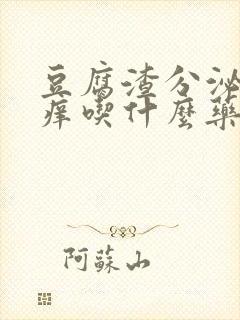 豆腐渣分泌
痒喫什麼藥
阿蘇山